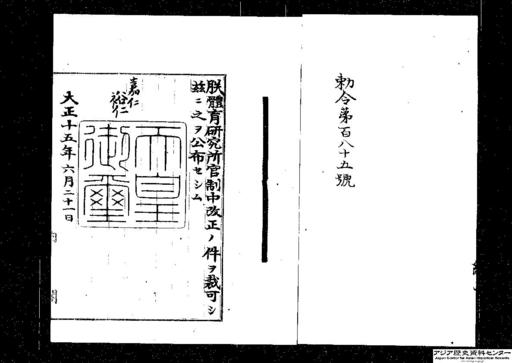 勅令第百八十五號
朕體育研究所官制中改正ノ件ヲ裁可シ
茲ニ之ヲ公布セシム
嘉仁
裕仁
天皇
御璽
大正十五年六月二十一日
アジア歴史資料センター
Japan Center for Asian Historical Records